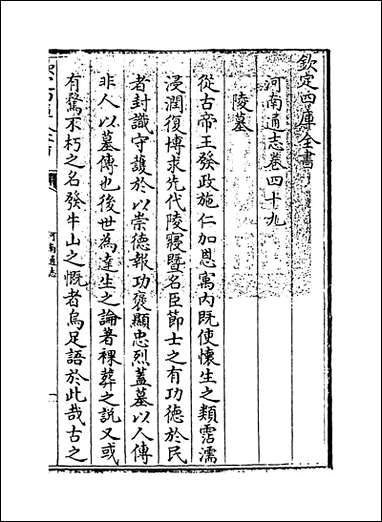 欽定四庫全書
河南通志卷四十九
陵墓
從古帝王發政施仁加恩寓内既使懷生之類霑濡
浸潤復博求先代陵寢暨名臣節士之有功德於民
者封識守護於以崇德報功褒顯忠烈蓋墓以人傳
非人以墓傳也後世為達生之論著裸葬之説又或
有騖不朽之名發牛山之慨者烏足語於此哉古之
河南通志